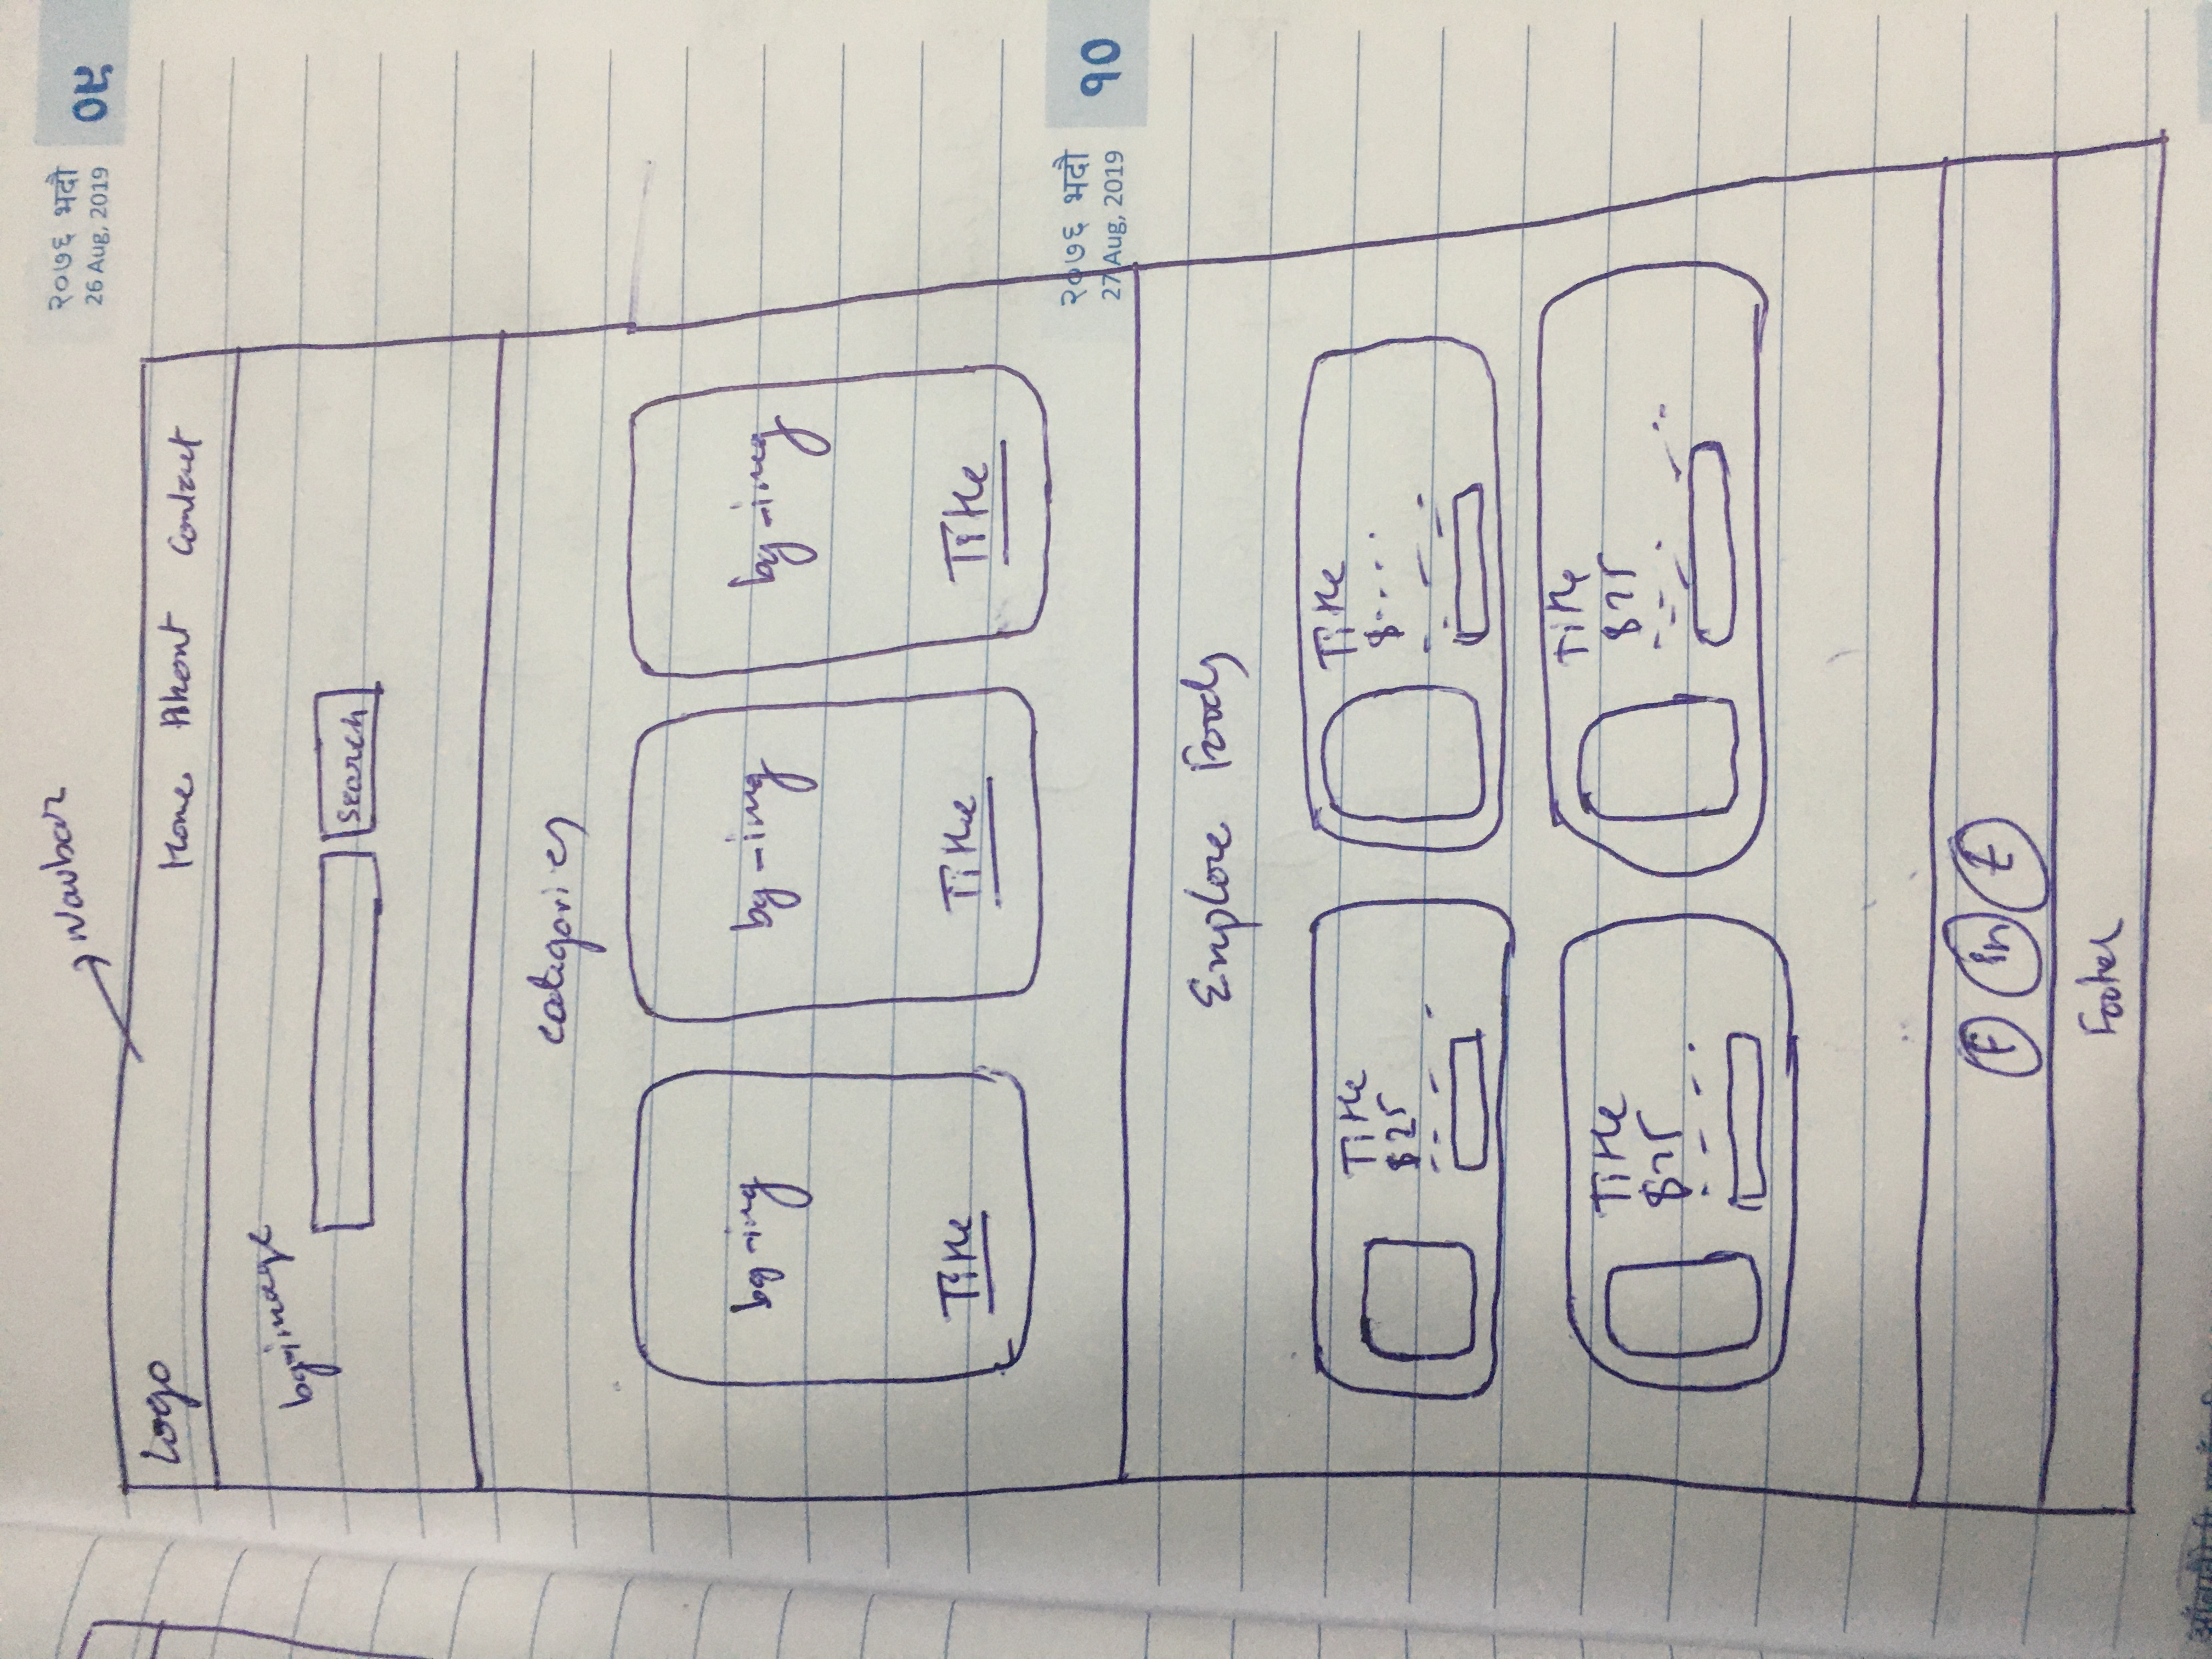 Navbar
२०७६ भदौ
26 Aug, 2019
०९
Logo
Home About Contact
bg-image
Search
Categories
bg-img bg-img bg-img
Title Title Title
२०७६ भदौ
27 Aug, 2019
१०
Explore Foods
Title
$25
Title
$....
Title
$25
Title
$25
F in t
Footer